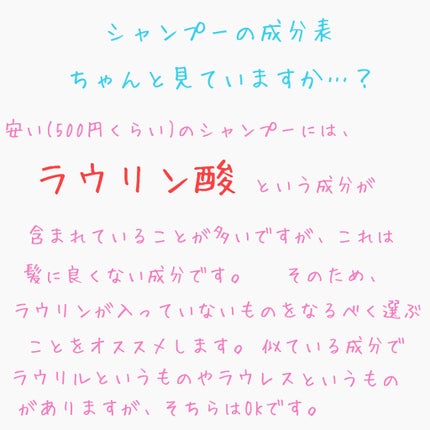 シャンプーの成分表
ちゃんと見ていますか…?
安い(500円くらい)のシャンプーには、
ラウリン酸 という成分が
含まれていることが多いですが、これは
髪に良くない成分です。 そのため、
ラウリンが入っていないものをなるべく選ぶ
ことをオススメします。似ている成分で
ラウリルというものやラウレスというもの
がありますが、そちらはOkです。